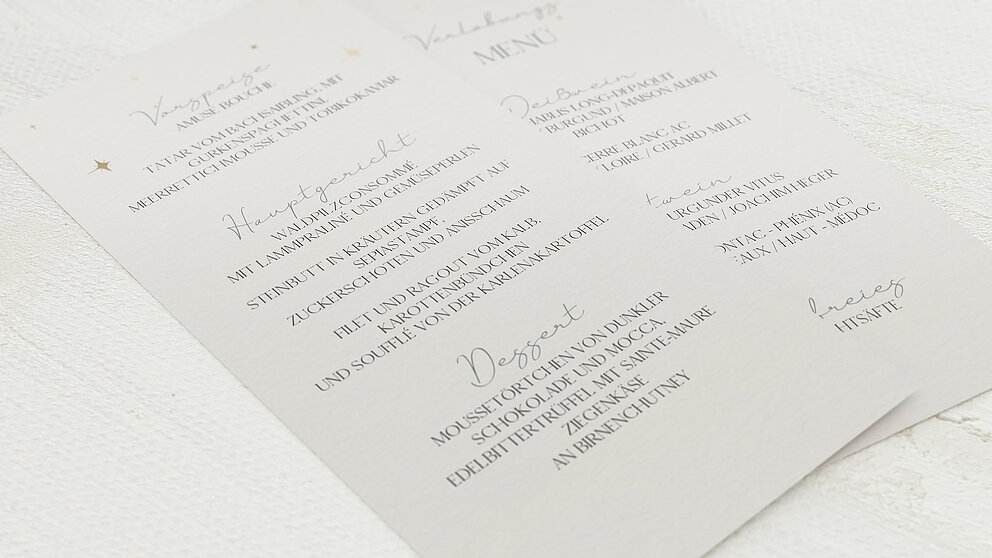 Vorspeise
AMUSE BOUCHE
TATAR VOM BACHSAIBLING, MIT
GURKENSPAGHETTINI,
MEERRETTICHMOUSSE UND TOBIKOKAVIAR
Hauptgericht
WALDPILZCONSOMMÉ
MIT LAMMPRALINÉ UND GEMÜSEPERLEN
STEINBUTT IN KRÄUTERN GEDÄMPFT AUF
SEPIASTAMPF -
ZUCKERSCHOTEN UND ANISSCHAUM
FILET UND RAGOUT VOM KALB,
KAROTTENBÜNDCHEN
UND SOUFFLÉ VON DER KARLENAKARTOFFEL
Dessert
MOUSSETÖRTCHEN VON DUNKLER
SCHOKOLADE UND MOCCA,
EDELBITTERTRÜFFEL MIT SAINTE-MAURE
ZIEGENKÄSE
AN BIRNENCHUTNEY
Verlobungs
MENÜ
Weißwein
ABLIS LONG-DEPAQUIT
BURGUND / MAISON ALBERT
BICHOT
ERRE BLANC AC
LOIRE / GERARD MILLET
twein
URGUNDER VITUS
DEN / JOACHIM HEGER
ONTAC - PHÉNIX (AC)
EAUX / HAUT - MÉDOC
freies
HTSÄFTE